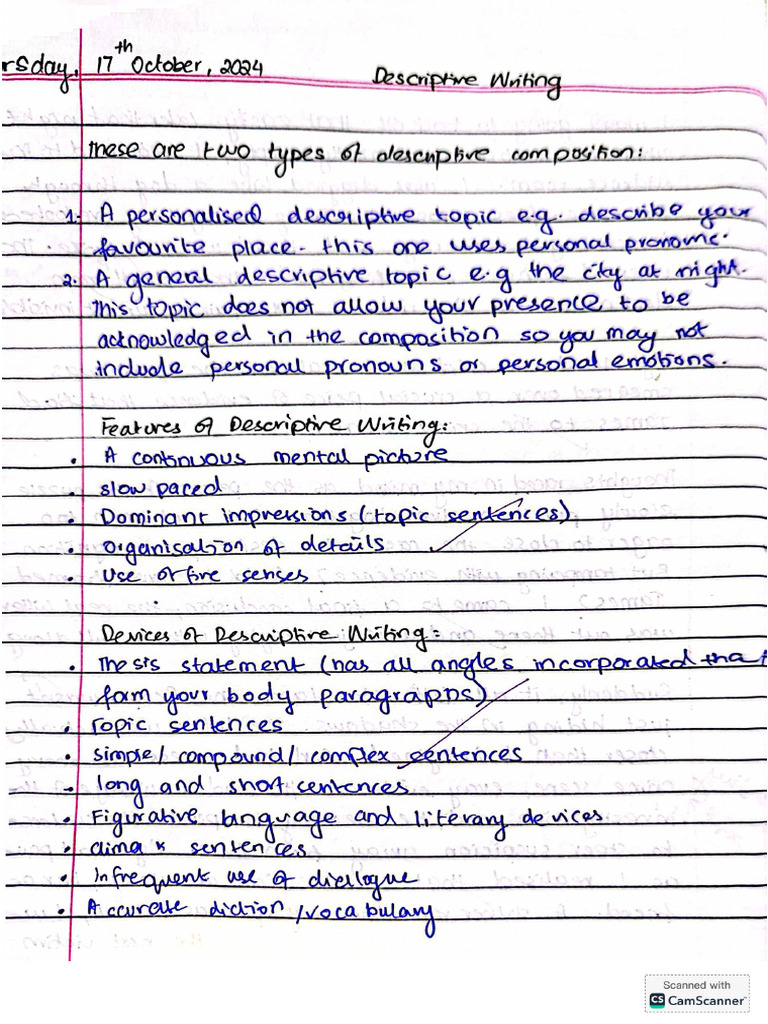 rsday, 17th October, 2024 Descriptive Writing
These are two types of descriptive composition:
1. A personalised descriptive topic e.g. describe your
favourite place. This one uses personal pronouns.
2. A general descriptive topic e.g the city at night.
This topic does not allow your presence to be
acknowledged in the composition so you may not
include personal pronouns or personal emotions.
Features of Descriptive Writing:
• A continuous mental picture
• slow paced
• Dominant impressions (topic sentences)
• Organisation of details
• Use of five senses
Devices of Descriptive Writing:
• Thesis statement (has all angles incorporated that
form your body paragraphs)
• Topic sentences
• simple/compound/complex sentences
• long and short sentences
• Figurative language and literary devices
• climax sentences
• Infrequent use of diellogue
• Accurate diction/vocabulary
Scanned with
CS CamScanner